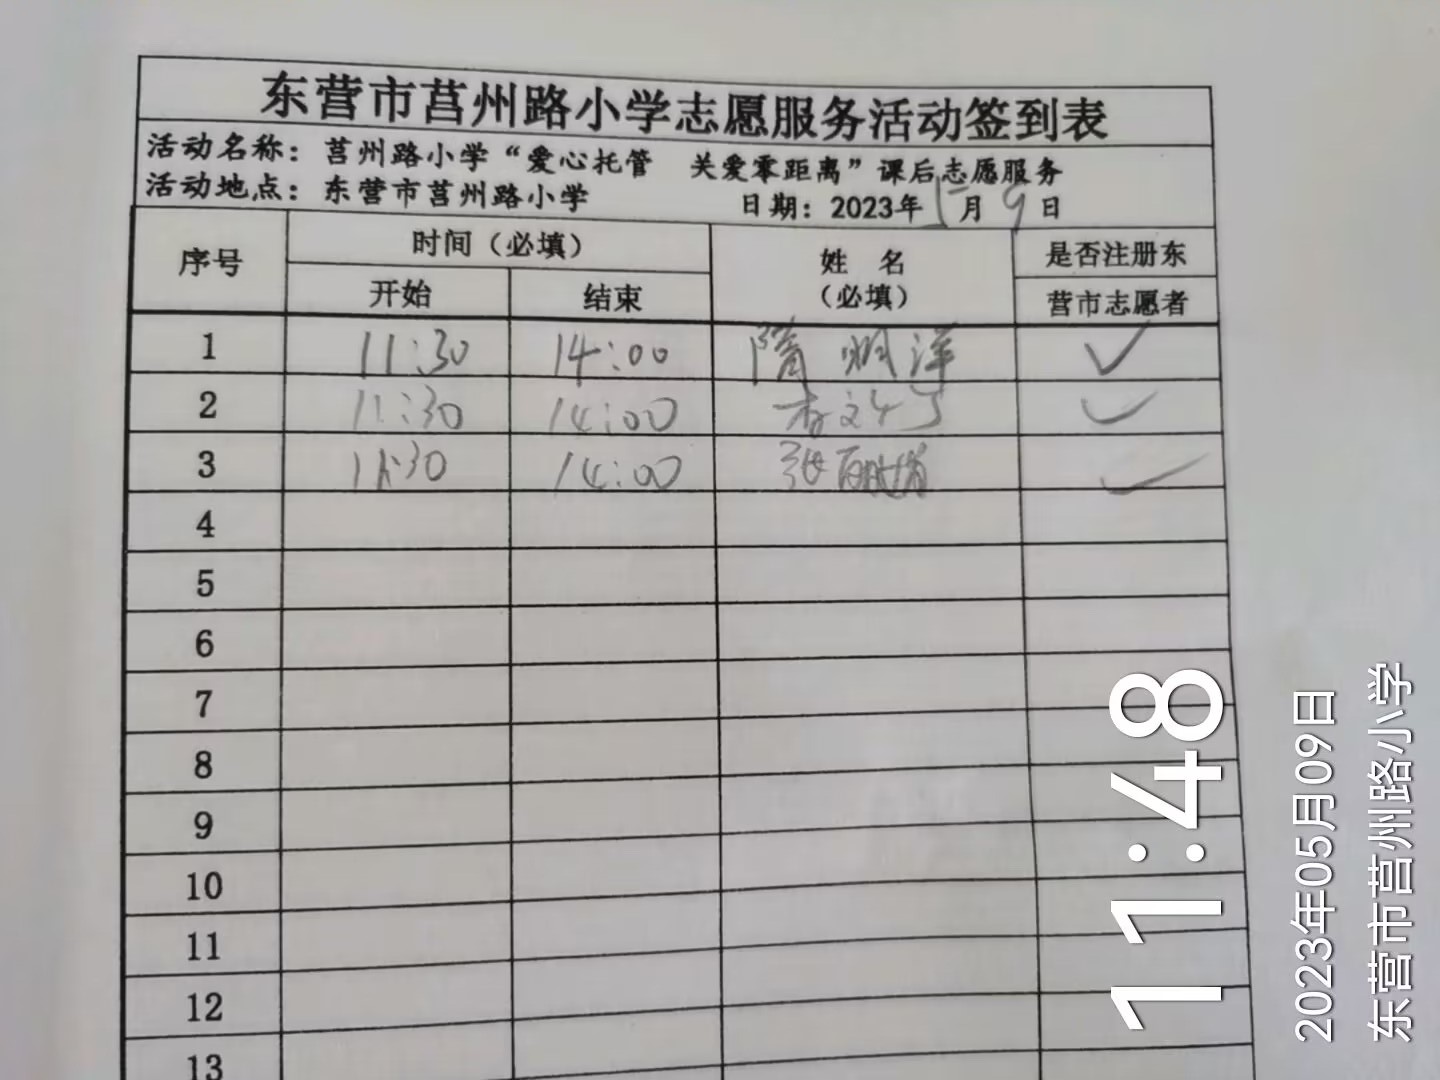 东营市莒州路小学志愿服务活动签到表
活动名称：莒州路小学“爱心托管 关爱零距离”课后志愿服务
活动地点：东营市莒州路小学 日期：2023年5月9日
序号 时间（必填） 姓 名（必填） 是否注册东营市志愿者
开始 结束
1 11:30 14:00 隋 洋 ✓
2 11:30 14:00 ✓
3 11:30 14:00 张 ✓
4
5
6
7
8
9
10
11
12
13
11:48
2023年05月09日
东营市莒州路小学